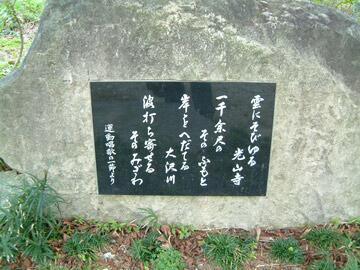 雲にそびゆる
光山寺
一千余尺の
そのふもと
岸をへだてる
大沢川
波打ち寄せる
そのみぎわ
運動唱歌の一節より